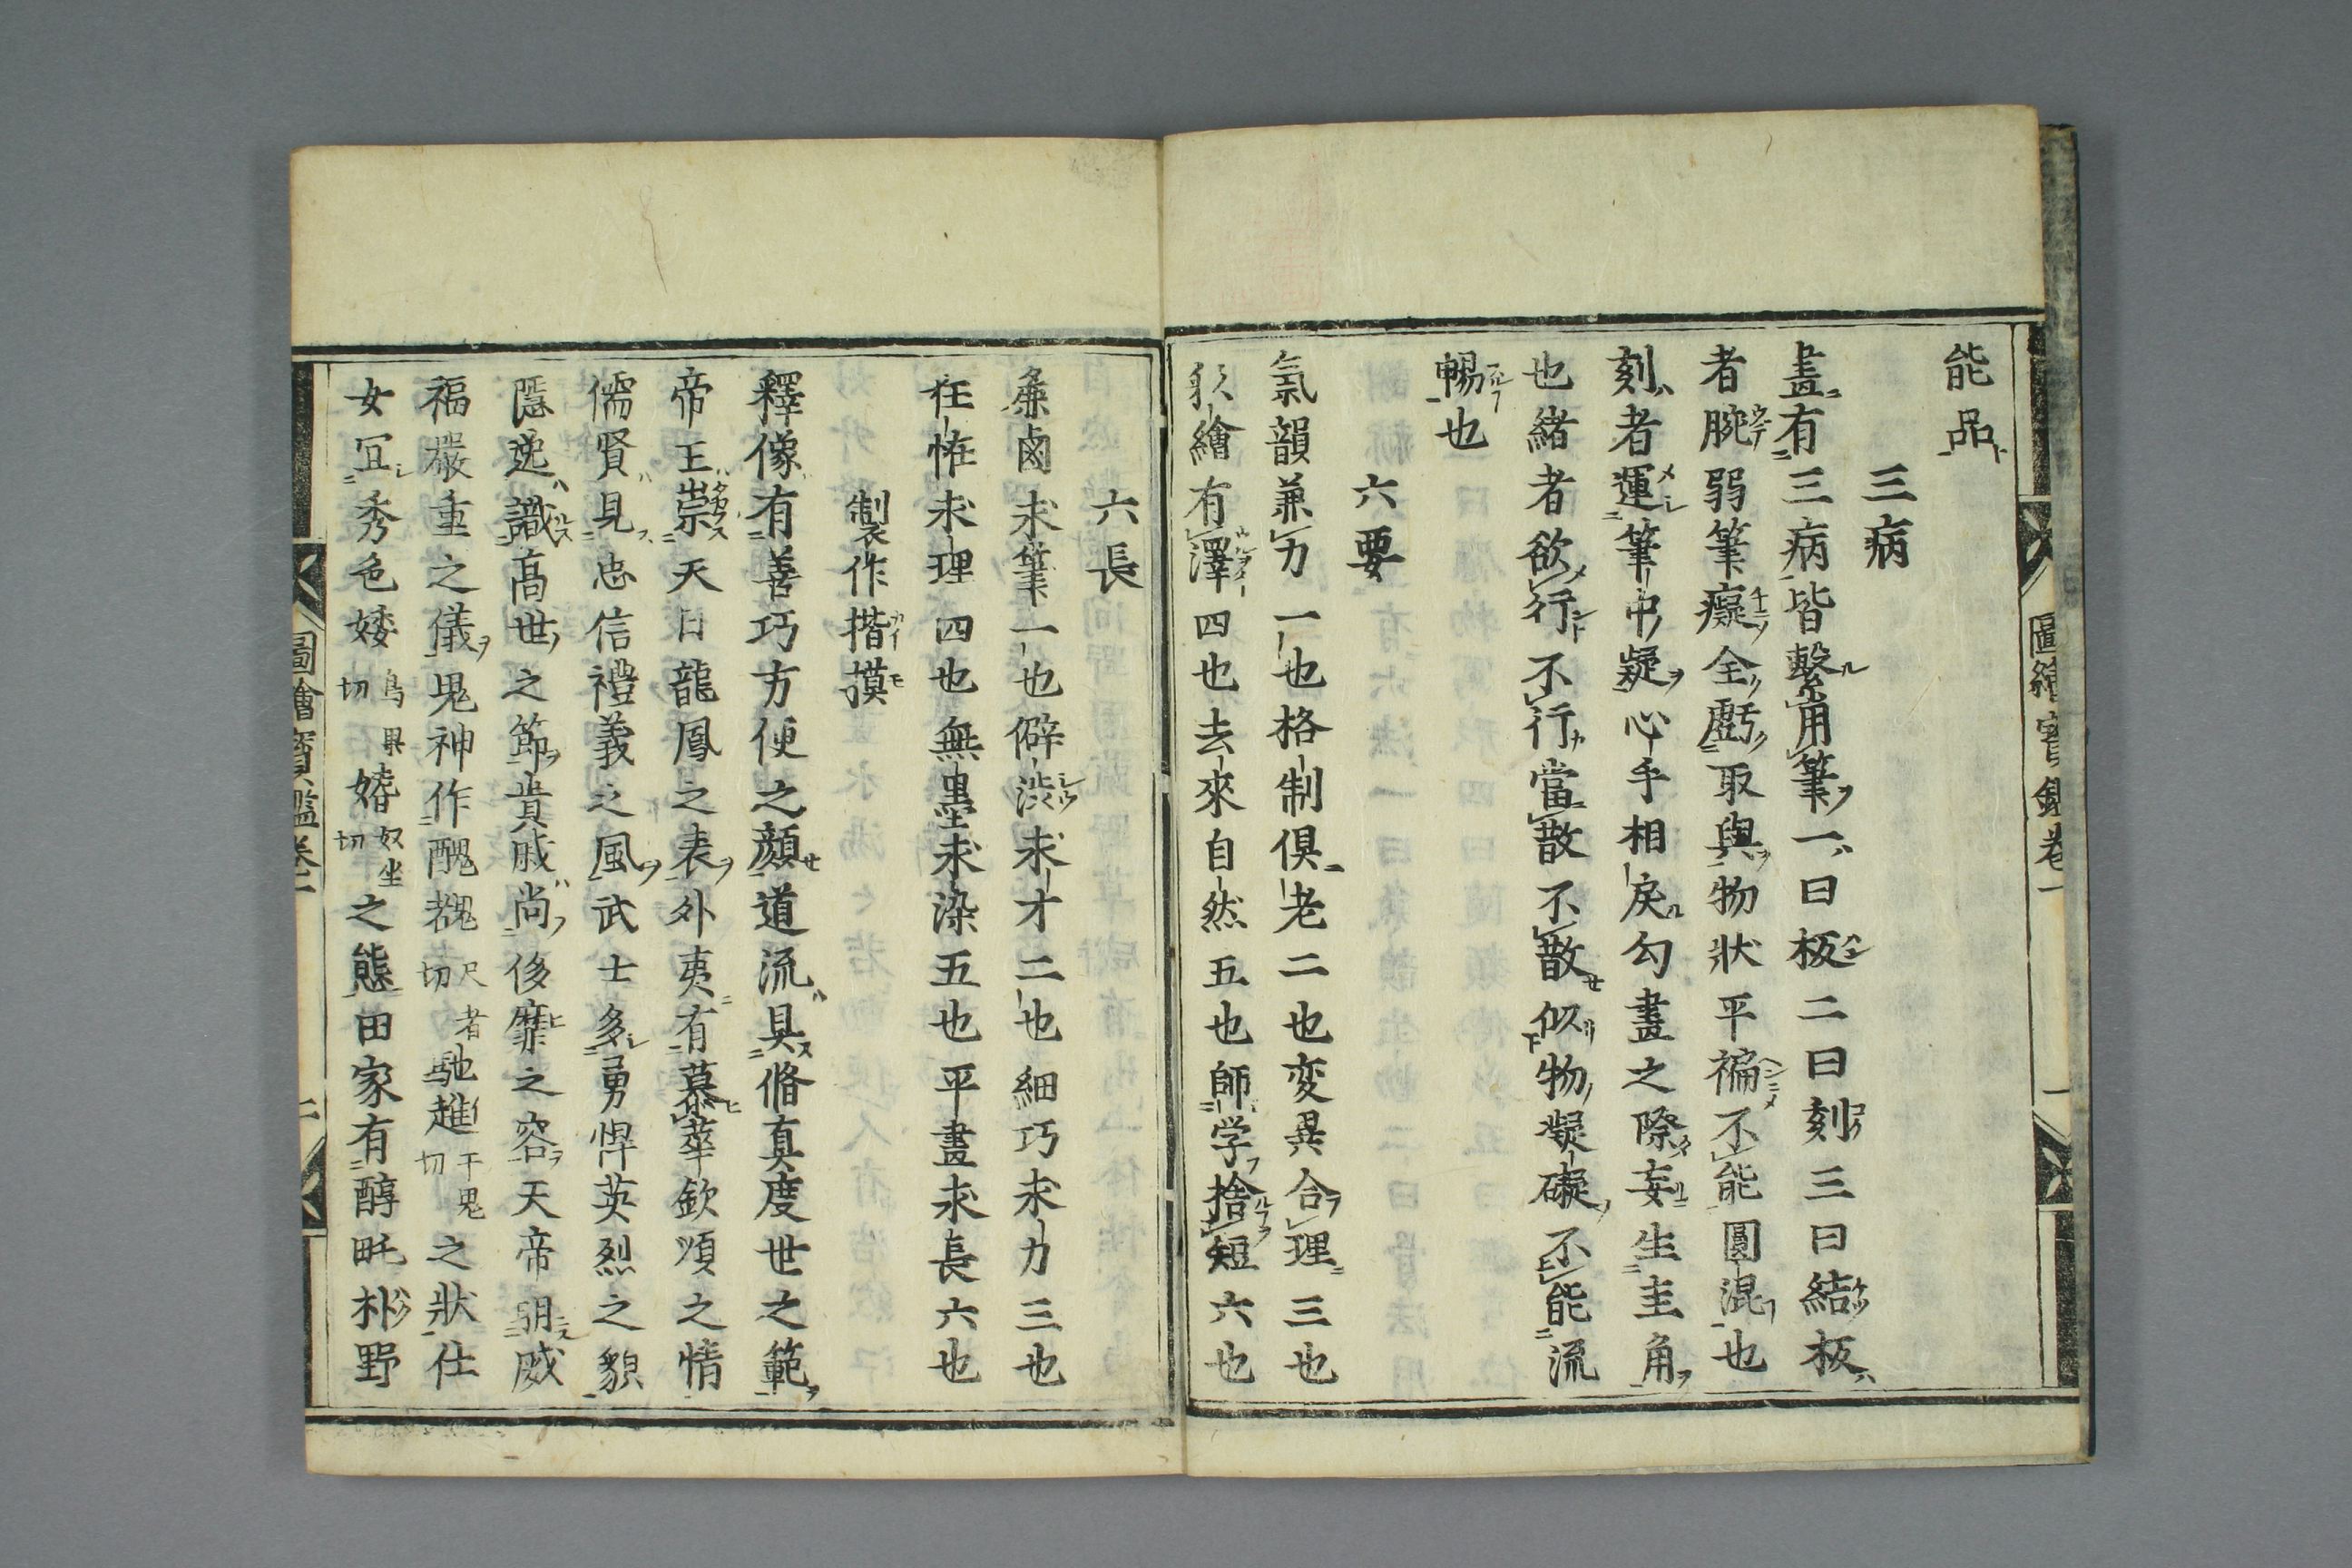 能品
三病
畫有三病皆繫用筆一曰板二曰刻三曰結板
者腕弱筆癡全虧取與物狀平褊不能圓混也
刻者運筆中疑心手相戾勾畫之際妄生圭角
也緒者欲行不行當散不散似物凝礙不能流
暢也
六要
氣韻兼力一也格制俱老二也変異合理三也
彩繪有澤四也去來自然五也師学捨短六也
六長
麁鹵求筆一也僻渋求才二也細巧求力三也
狂恠求理四也無墨求染五也平畫求長六也
製作揩摸
釋像有善巧方便之顔道流具脩真度世之範
帝王崇天日龍鳳之表外夷有慕華欽順之情
儒賢見忠信禮義之風武士多勇悍英烈之貌
隱逸識高世之節貴戚尚侈靡之容天帝明威
福嚴重之儀鬼神作醜䰩尺者切馳趡干鬼切之狀仕
女冝秀色婑烏果切婧奴坐切之態田家有醇甿朴野
圖繪寳鑑卷一
一
圖繪寳鑑卷一
二